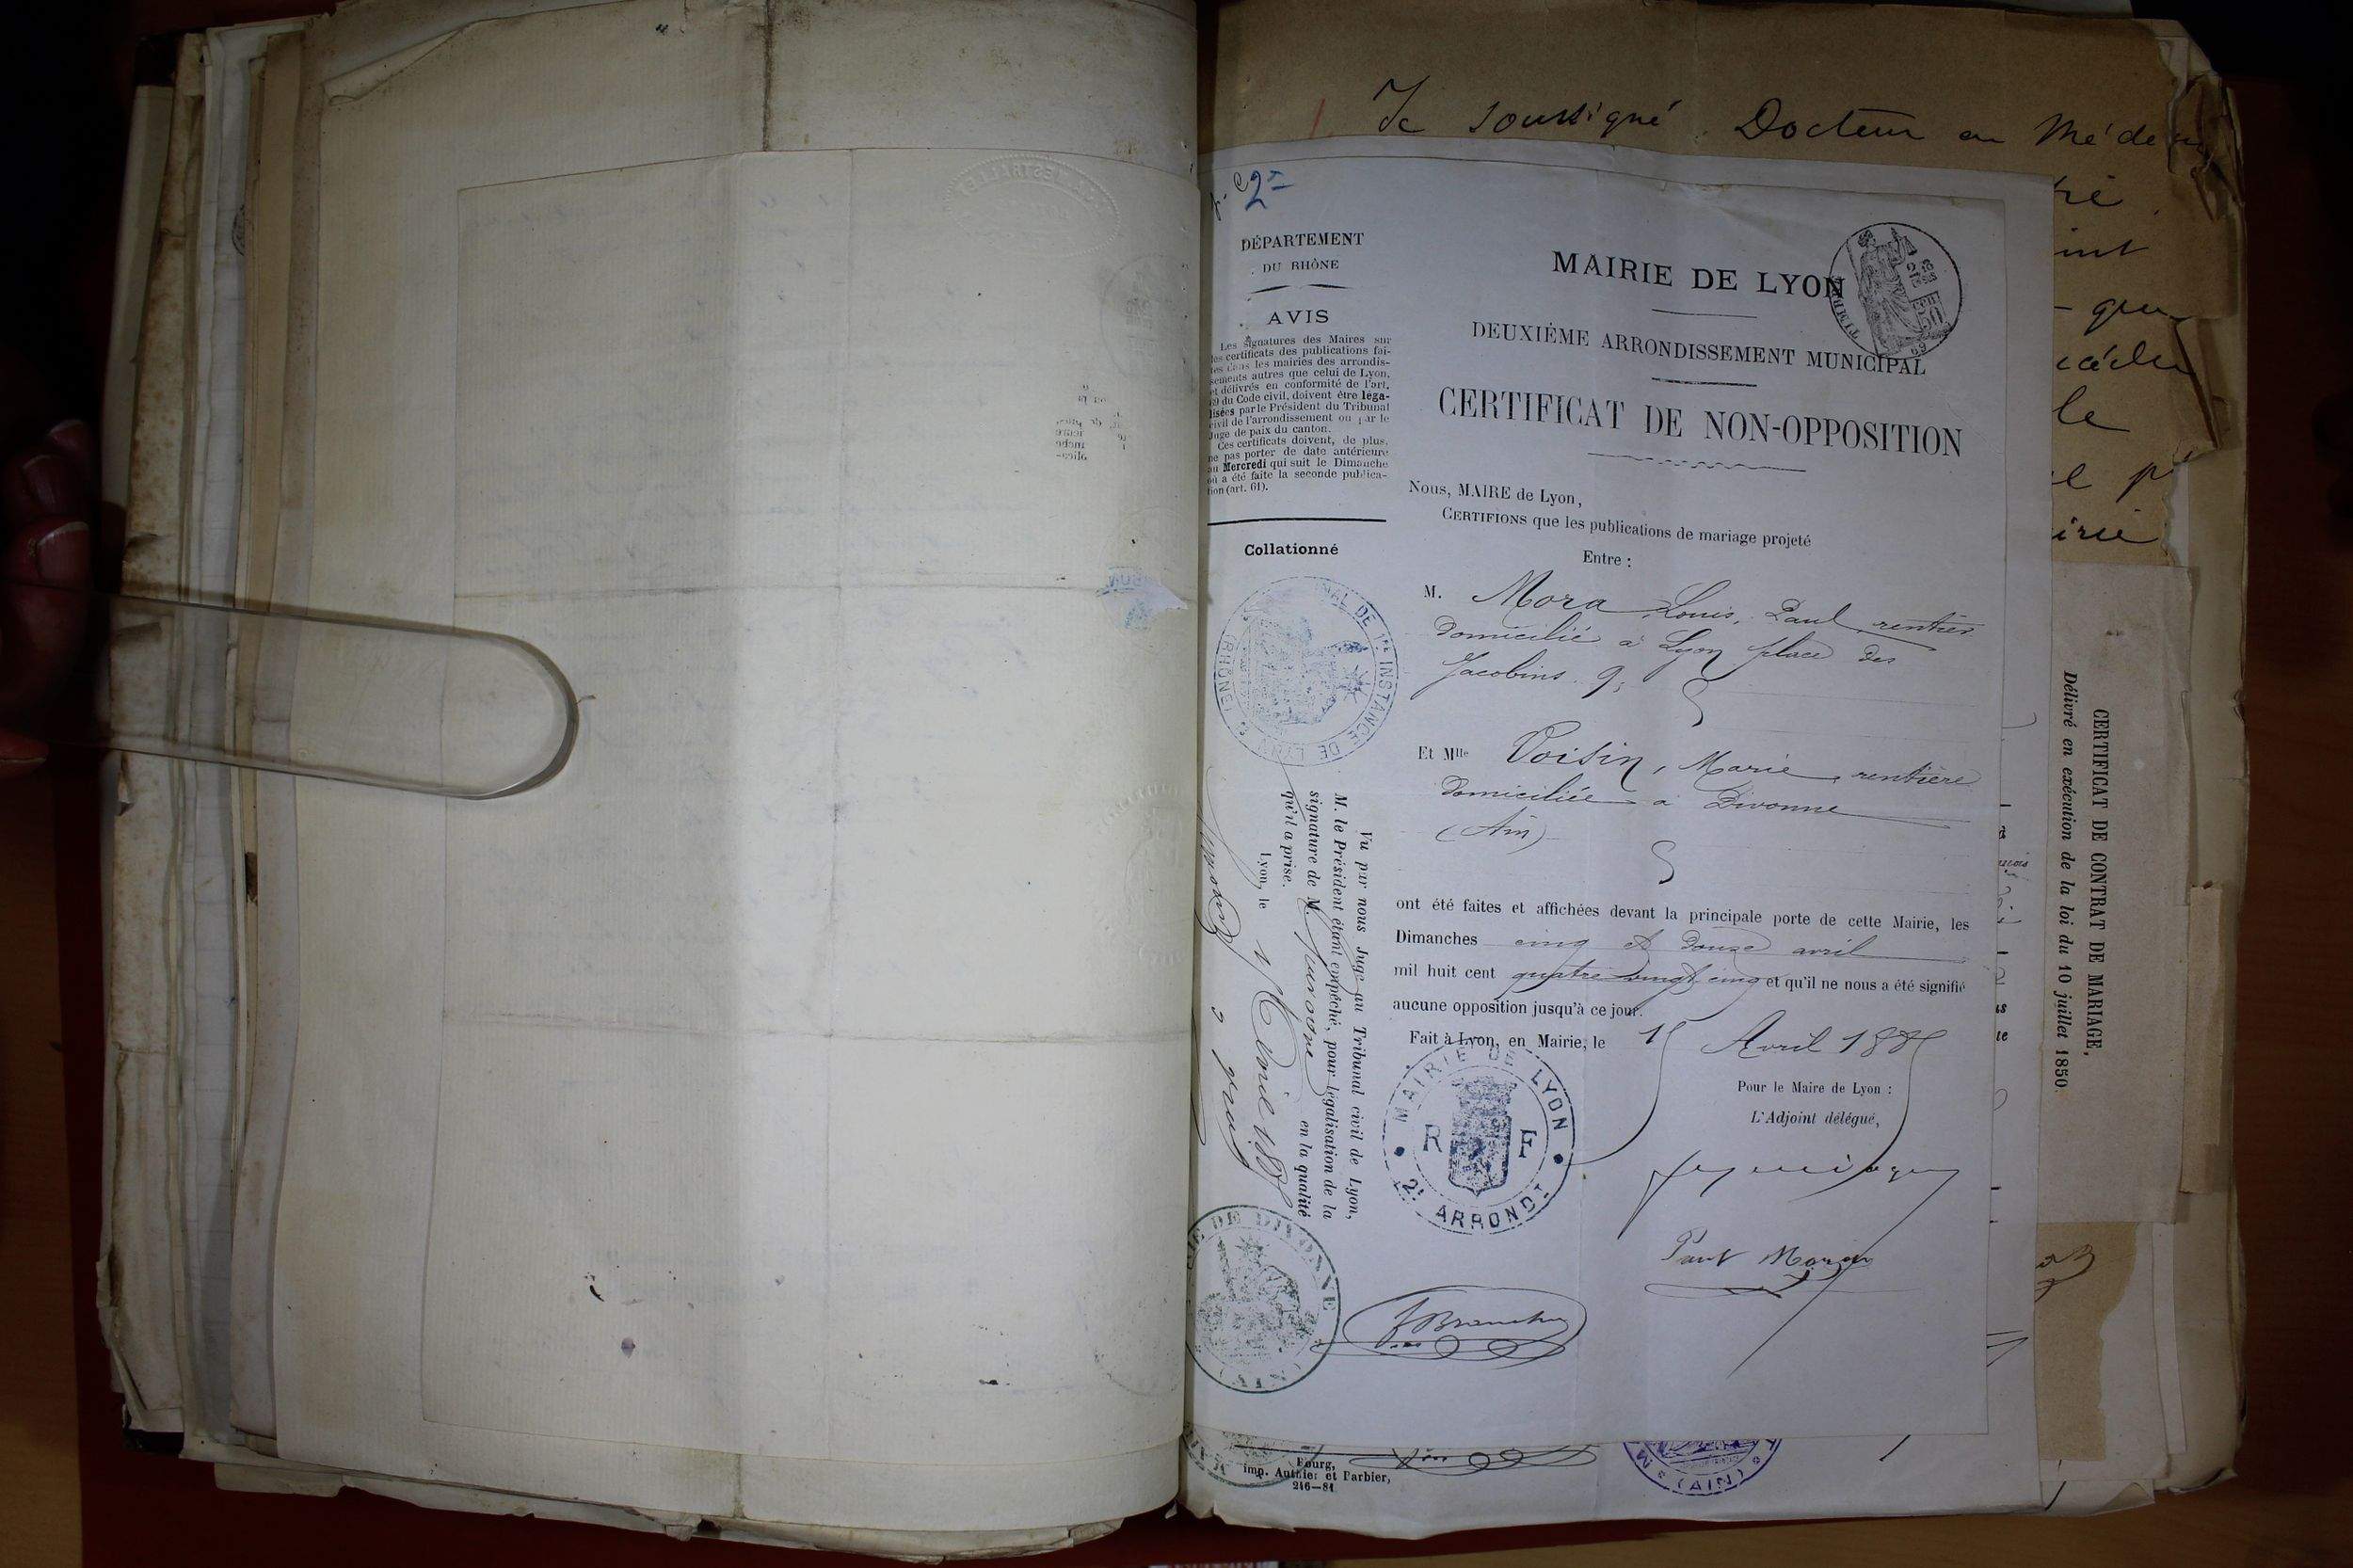 Je soussigné Docteur en Méde
2e
DÉPARTEMENT
DU RHÔNE
AVIS
Les signatures des Maires sur
les certificats des publications fai-
tes dans les mairies des arrondis-
sements autres que celui de Lyon,
et délivrés en conformité de l'art.
69 du Code civil, doivent être léga-
lisées par le Président du Tribunal
civil de l'arrondissement ou par le
Juge de paix du canton.
Ces certificats doivent, de plus,
ne pas porter de date antérieure
au Mercredi qui suit le Dimanche
où a été faite la seconde publica-
tion (art. 61).
Collationné
MAIRIE DE LYON
DEUXIÈME ARRONDISSEMENT MUNICIPAL
CERTIFICAT DE NON-OPPOSITION
Nous, MAIRE de Lyon,
CERTIFIONS que les publications de mariage projeté
Entre :
M. Mora, Louis, Paul, rentier
domicilié à Lyon place des
Jacobins 9;
Et Mlle Voisin, Marie, rentière
domiciliée à Divonne
(Ain)
ont été faites et affichées devant la principale porte de cette Mairie, les
Dimanches cinq et douze avril
mil huit cent quatre vingt cinq et qu'il ne nous a été signifié
aucune opposition jusqu'à ce jour.
Fait à Lyon, en Mairie, le 15 Avril 1885
Pour le Maire de Lyon :
L'Adjoint délégué,
MAIRIE DE LYON
R F
2e ARRONDT
TRIBUNAL DE 1re INSTANCE DE LYON (RHÔNE)
Vu par nous Juge au Tribunal civil de Lyon,
M. le Président étant empêché, pour légalisation de la
signature de M. en la qualité
qu'il a prise.
Lyon, le Avril 1885
MAIRIE DE DIVONNE (AIN)
Bourg,
imp. Authier et Barbier,
246—84
(AIN)
CERTIFICAT DE CONTRAT DE MARIAGE,
Délivré en exécution de la loi du 10 juillet 1850.